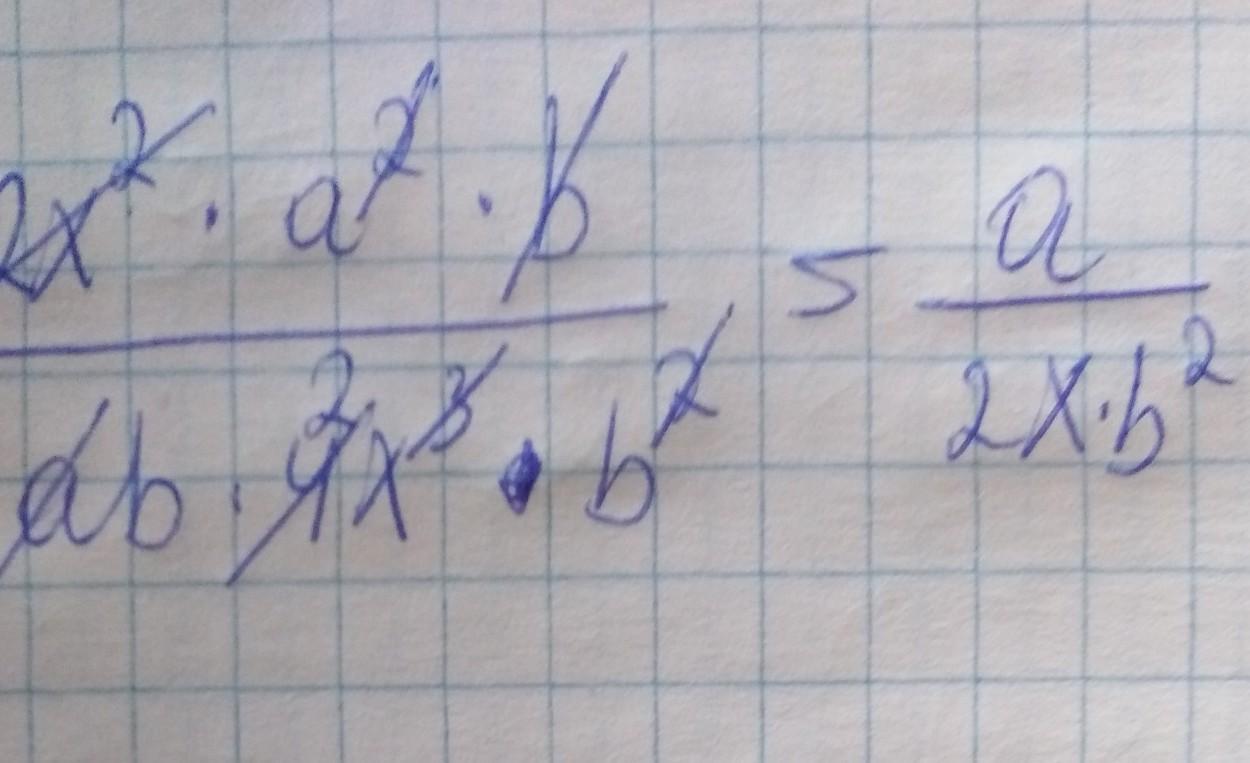 2x² · a² · b
ab · 4x³ · b² = a
2
2x·b²